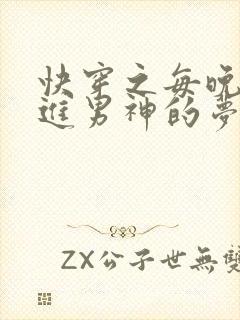 快穿之每晚
進男神的夢
ZX公子世無雙